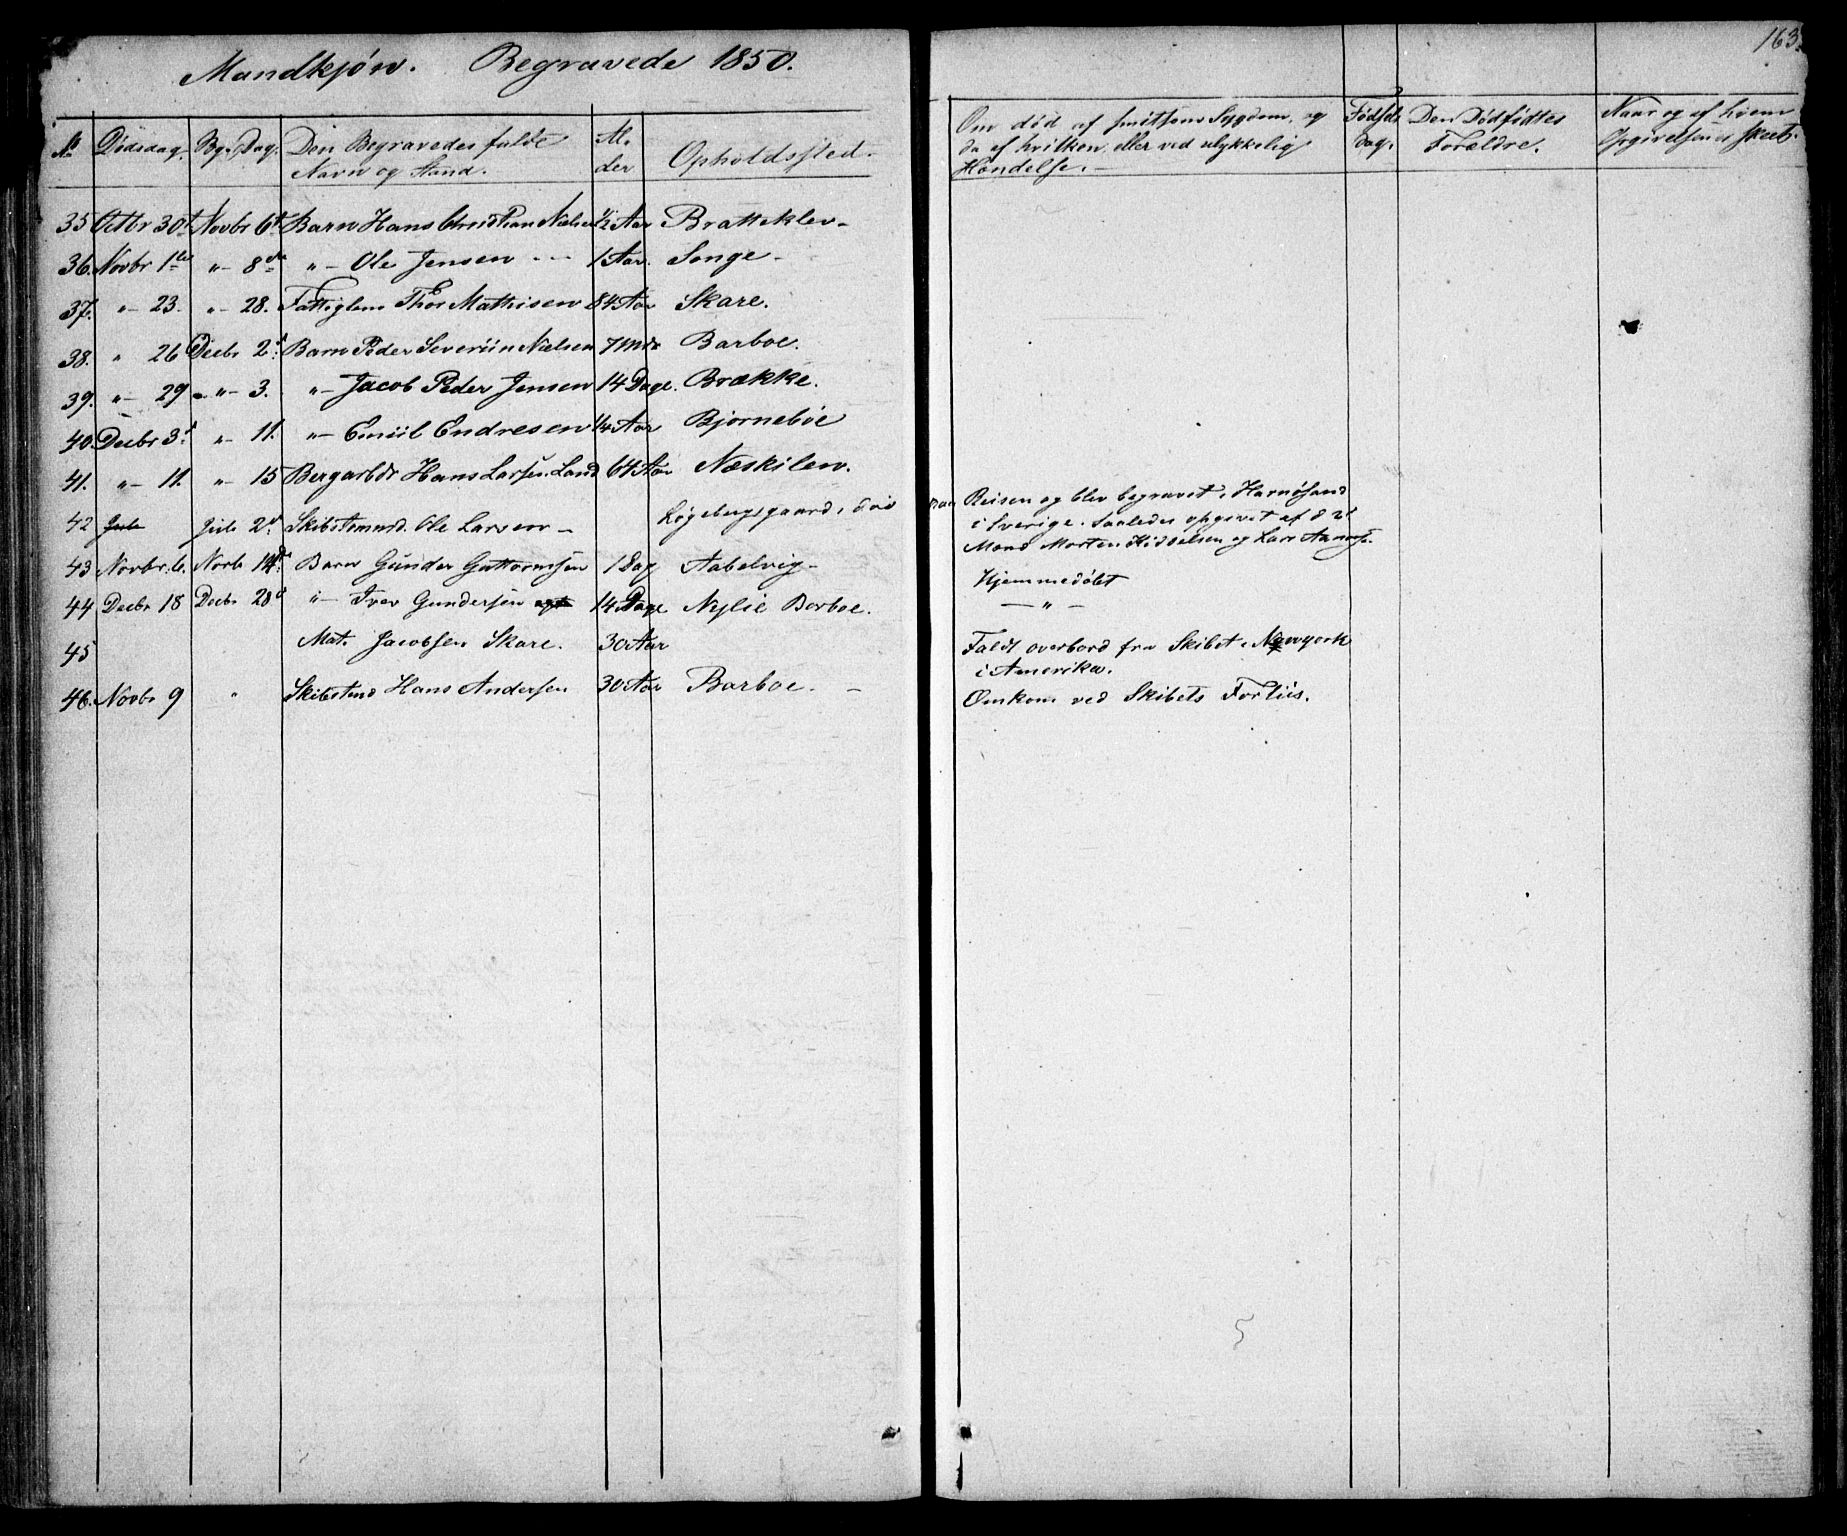 163.
Mandkjøn. Begravede 1850.
No Dødsdag. Begr. Dag. Den Begravedes fulde Navn og Stand. Alder Opholdssted. Om død af smitsom Sygdom, og da af hvilken, eller ved ulykkelig Hændelse. Fødselsdag. Den Dødfødtes Forældre. Naar og af hvem Opgivelsen er skeet.
35 Octbr 30t Novbr 6t Barn Hans Christian Nielsen 1/2 Aar Bratteklev
36. Novbr 1ste " 8de " Ole Jensen 1 Aar. Songe
37. " 23. " 28. Fattiglem Thor Mathisen 84 Aar Skare.
38. " 26 Decbr 2d Barn Peder Severiin Nielsen 7 Mdr Barboe.
39. " 29 " 3. " Jacob Peder Jensen 14 Dage. Brække.
40. Decbr 3d " 11. " Emiil Endresen 1/4 Aar Bjornebøe
41. " 11. " 15 Bergarbdr Hans Larsen Land 64 Aar Næskilen.
42 Jule Jule 2d Skibstmmd. Ole Larsen Løgebergsgaard, døde paa Reisen og blev begravet i Harnøsand
i Sverige. Saaledes opgivet af d 2
Mænd Morten Kiddelsen og Lars
43 Novbr. 6. Novb 14de Barn Gunder Guttormsen 1 Dag Aabelvig Hjemmedøbt
44 Decbr 18 Decbr 28d " Iver Gundersen 14 Dage Nylie Barboe. "
45 Mat. Jacobsen Skare. 30 Aar Faldt overbord fra Skibet i Newyork
i Amerika.
46. Novbr 9 " Skibstmd Hans Andersen 30 Aar Barboe. Omkom ved Skibets Forliis.
5